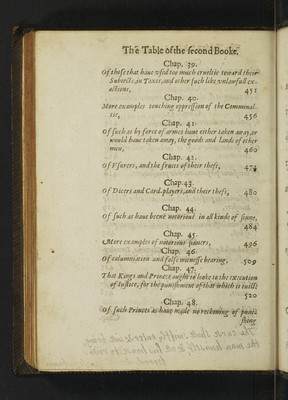 The Table of the second Booke.
Chap. 39.
Of those that haue vsed too much crueltie toward their
Subiects, in Taxes, and other such like vnlawfull ex-
actions, 451
Chap. 40.
More examples touching oppression of the Communal-
tie, 456
Chap. 41.
Of such as by force of armes haue either taken away, or
would haue taken away, the goods and lands of other
men, 460
Chap. 42.
Of Vsurers, and the fruits of their theft,
Chap. 43.
Of Dicers and Card-players, and their theft, 480
Chap. 44.
Of such as haue beene notorious in all kinde of sinne,
484
Chap. 45.
More examples of notorious sinners, 496
Chap. 46.
Of calumniation and false witnesse bearing, 509
Chap. 47.
That Kings and Princes ought to looke to the execution
of Iustice, for the punishment of that which is euill:
520
Chap. 48.
Of such Princes as haue made no reckoning of punish-
shing